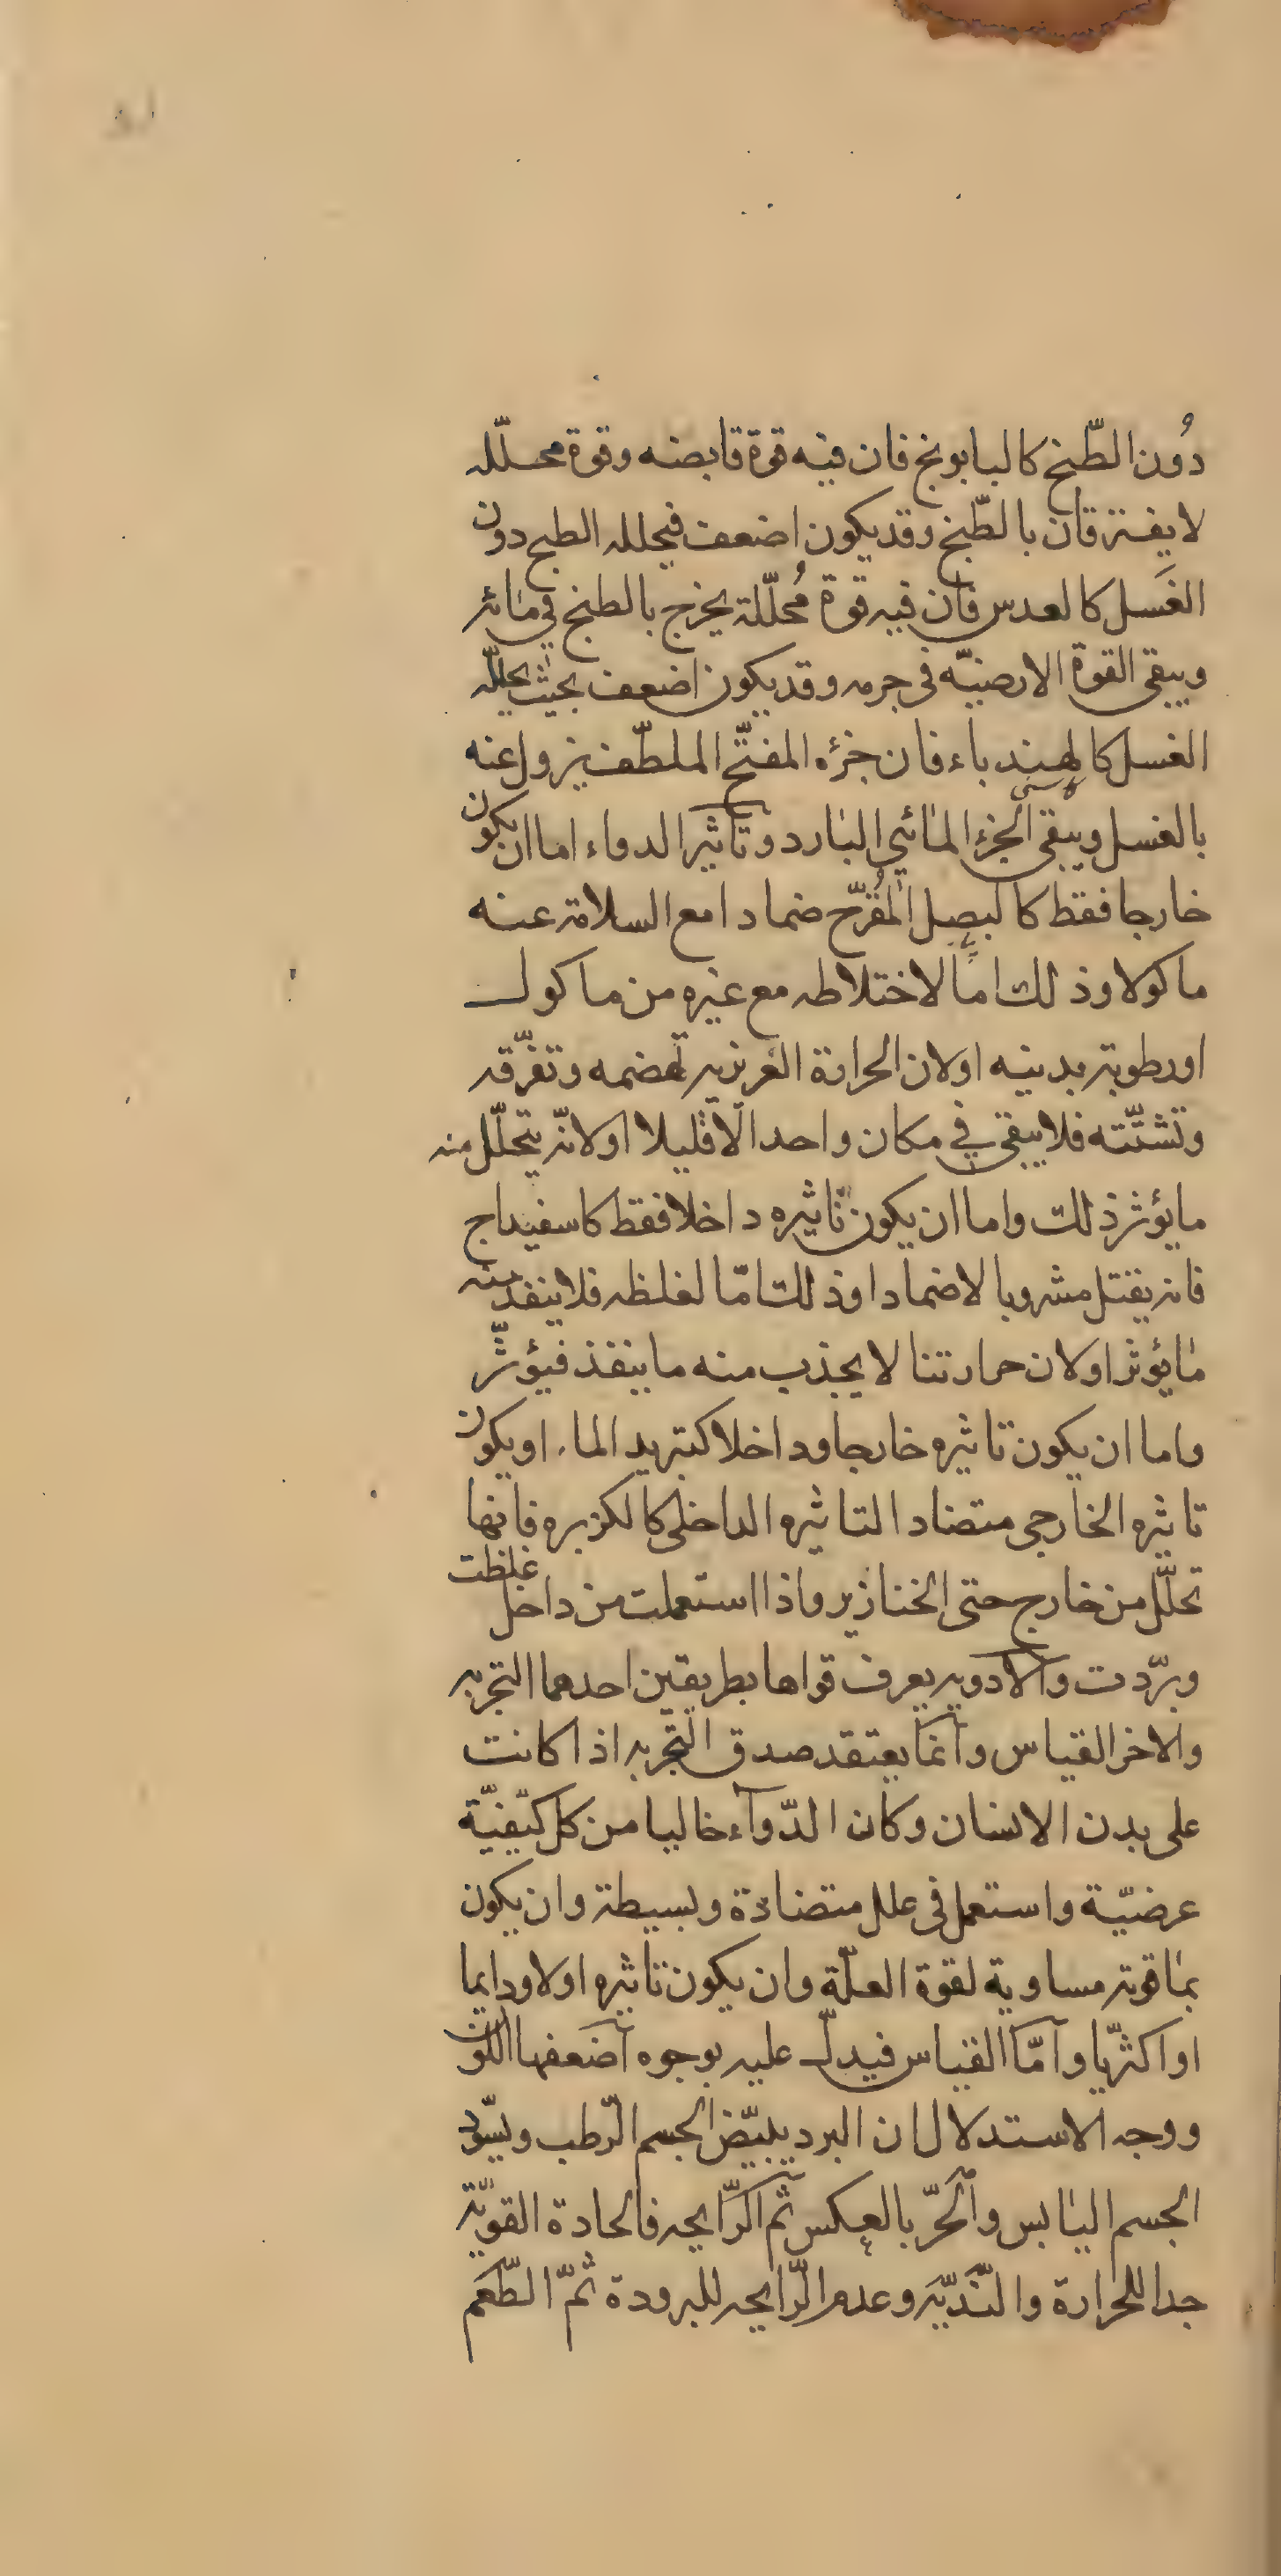 دُون الطّبخ كالبابونج فان فيه قوة قابضه وقوة محلّله
لا يفترقان بالطّبخ وقد يكون اضعف فيحلله الطبخ دون
الغَسل كالعدس فان فيه قوة مُحلّلة يخرج بالطبخ في مائه
ويبقى القوة الارضيّه فى جرمه وقد يكون اضعف بحيث يحلّله
الغسل كالهندباء فان جزءه المفتّح الملطّف يزول عنه
كاسنى
بالغسل ويبقى الجزء المائي البارد وتاثير الدواء اما ان يكون
خارجا فقط كالبصل المُقرّح ضمادا مع السلامة عنه
ماكولا وذلك امّا لاختلاطه مع غيره من ماكول
او رطوبة بدنيه او لان الحرارة الغريزيه تهضمه وتفرّقه
وتشتّته فلا يبقى في مكان واحد الّا قليلا او لانّه يتحلّل منه
ما يؤثر ذلك واما ان يكون تاثيره داخلا فقط كاسفيداج
فانه يقتل مشروبا لا ضمادا وذلك امّا لغلظه فلا ينفذ منه
ما يؤثر او لان حرارتنا لا يجذب منه ما ينفذ فيؤثّر
واما ان يكون تاثيره خارجا وداخلا كتبريد الماء او يكون
تاثيره الخارجى متضاد التاثيره الداخلى كالكزبره فانها
تحلّل من خارج حتى الخنازير واذا استعملت من داخل غلظت
وبرّدت والادويه يعرف قواها بطريقين احدهما التجربه
والاخر القياس وانما يعتقد صدق التّجربه اذا كانت
على بدن الانسان وكان الدّوآء خاليا من كل كيفيّة
عرضيّة واستعمل فى علل متضادة وبسيطة وان يكون
بما قوته مساوية لقوة العلّة وان يكون تاثيره اولا ودايما
او اكثريّا وآمّا القياس فيدلّ عليه بوجوه اضعفها اللون
ووجه الاستدلال ان البرد يبيّض الجسم الرّطب ويسوّد
الجسم اليابس والحرّ بالعكس ثم الرّايحه فالحادة القويّة
جدا للحرارة والنّديّه وعدم الرّايحه للبرودة ثمّ الطّعم